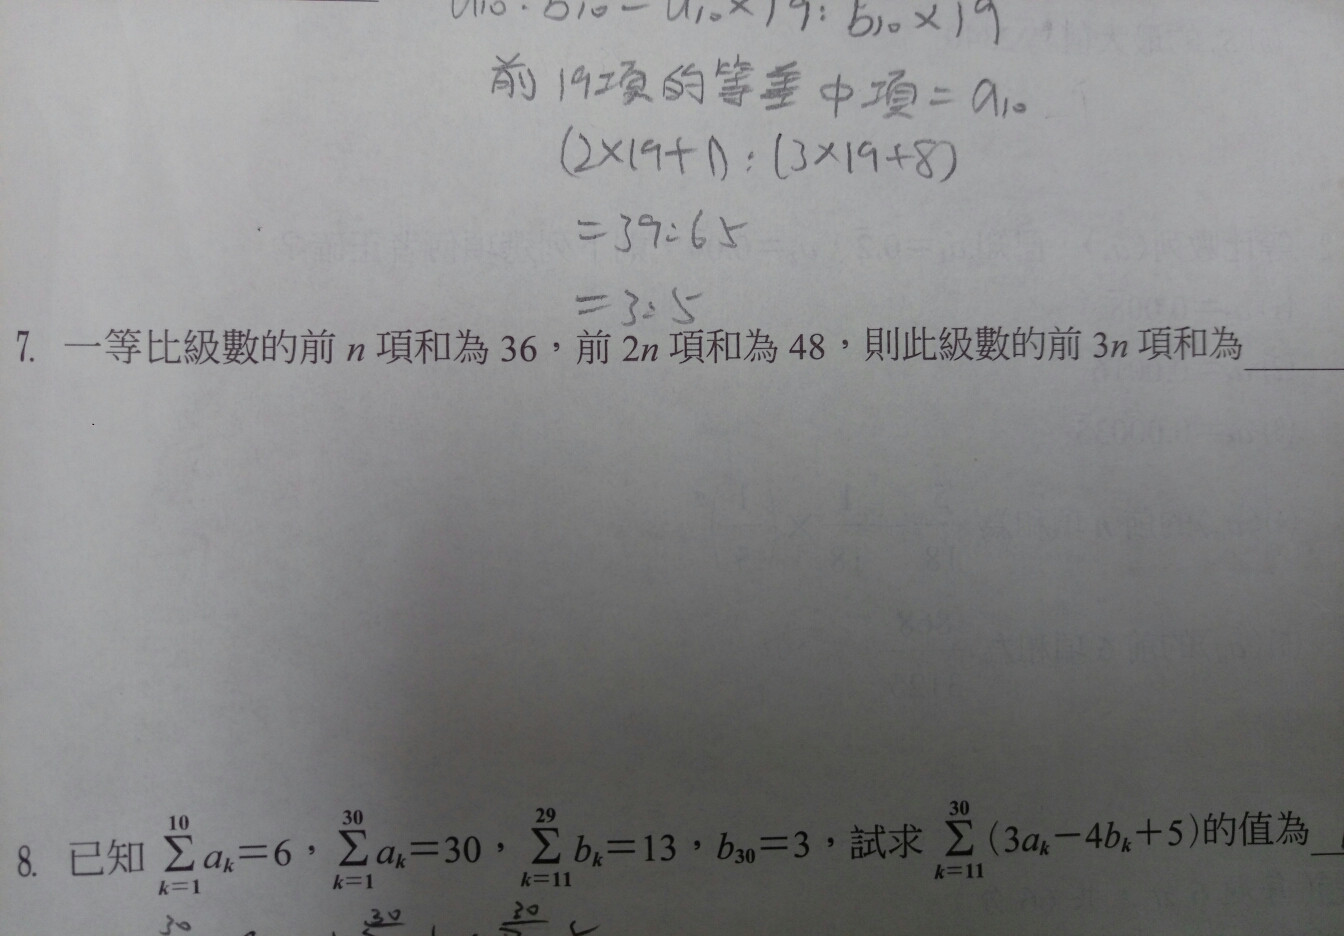 a₁₀:b₁₀=a₁₀×19:b₁₀×19
前19項的等差中項=a₁₀
(2×19+1):(3×19+8)
=39:65
=3:5
7. 一等比級數的前 n 項和為 36，前 2n 項和為 48，則此級數的前 3n 項和為
8. 已知 \sum_{k=1}^{10} a_k=6，\sum_{k=1}^{30} a_k=30，\sum_{k=11}^{29} b_k=13，b_{30}=3，試求 \sum_{k=11}^{30} (3a_k-4b_k+5)的值為